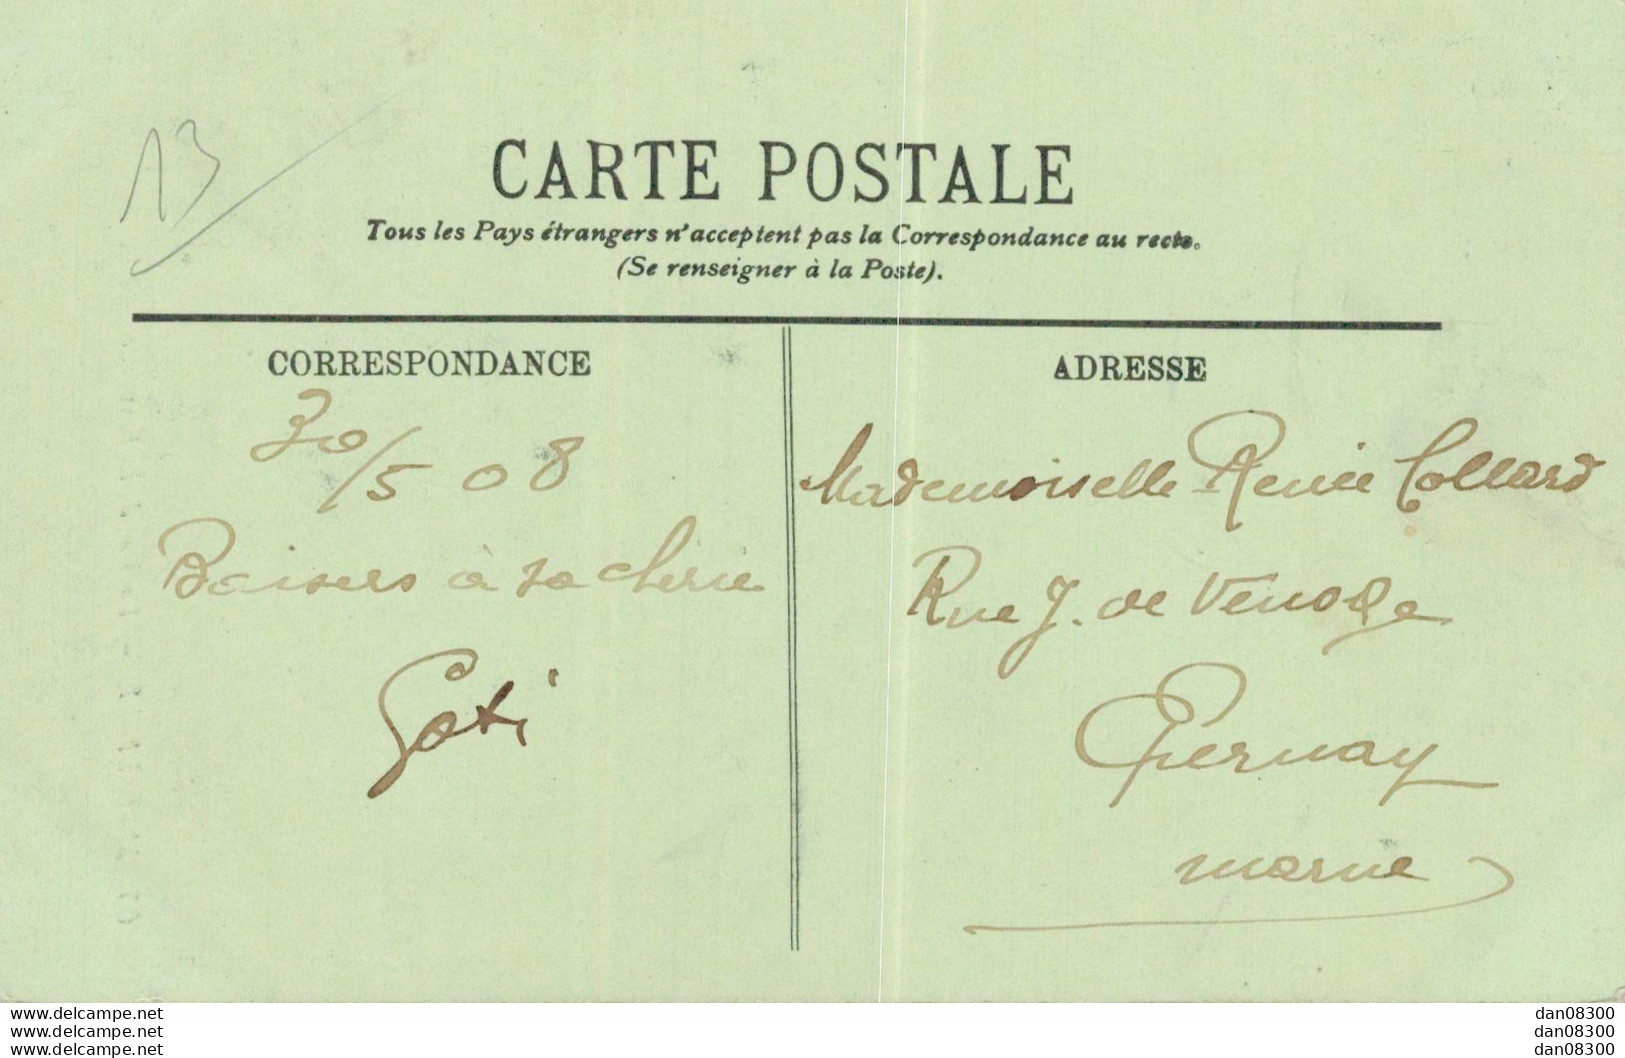 13
CARTE POSTALE
Tous les Pays étrangers n'acceptent pas la Correspondance au recto.
(Se renseigner à la Poste).
CORRESPONDANCE
30/5 08
Baisers à sa cherie
Goti
ADRESSE
Mademoiselle Renée Collard
Rue J. de Venoge
Epernay
Marne
www.delcampe.net
www.delcampe.net
www.delcampe.net
dan08300
dan08300
dan08300